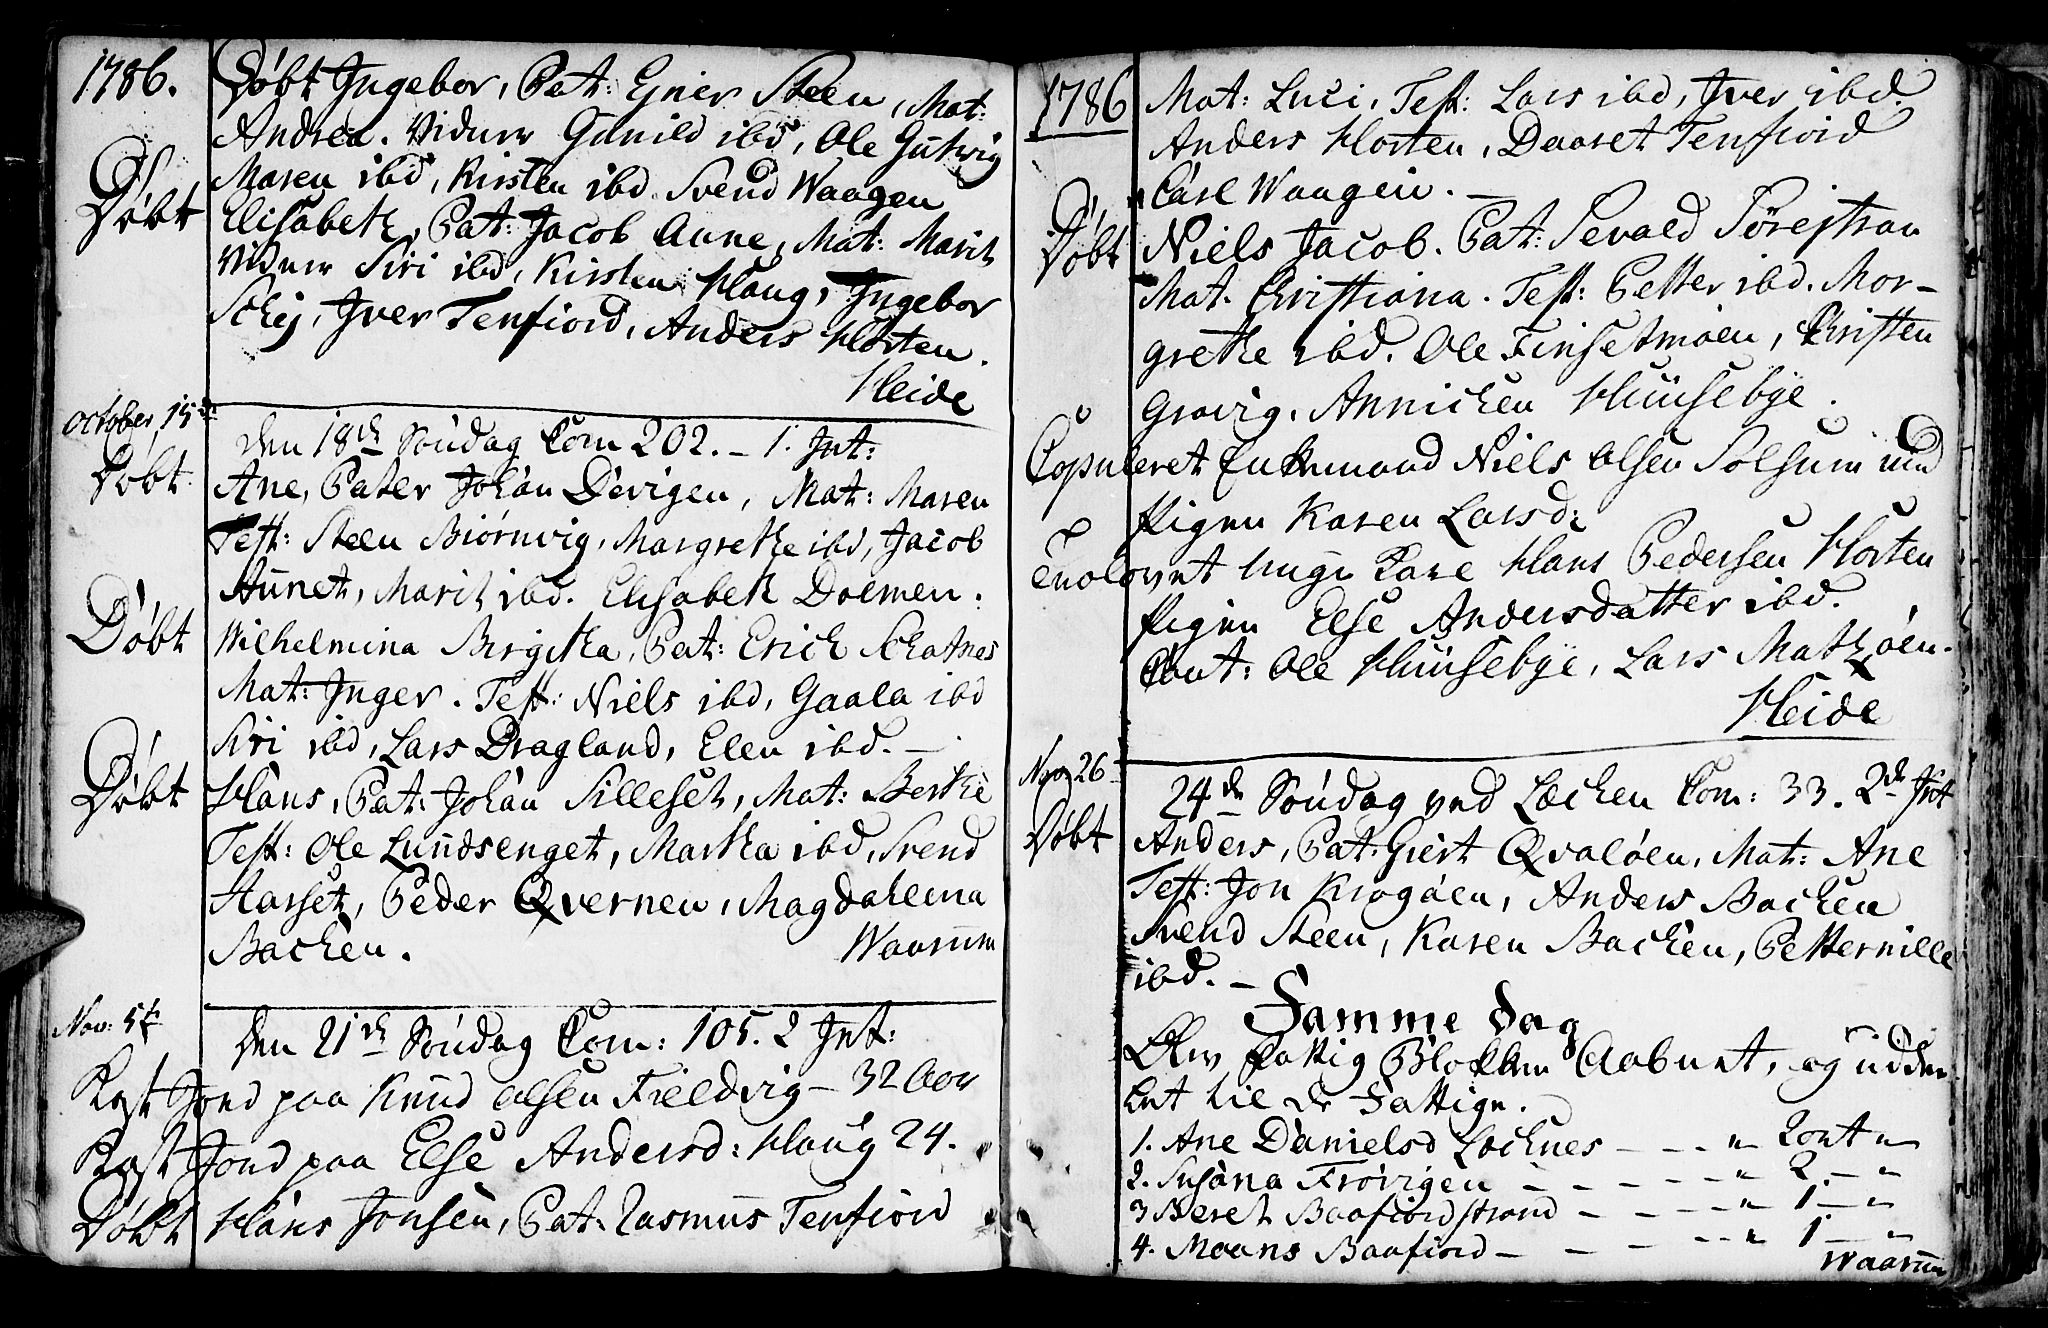 1786.
Döbt Ingebor, Pat: Ejner Steen, Mat:
Andrea. Vidner Gunild ibd, Ole Gutvig
Döbt
Maren ibd, Kirsten ibd Svend Waagen
Elisabeth, Pat: Jacob Aune, Mat: Marit
Vidner Siri ibd, Kirsten Haug, Ingebor
Schej, Iver Tenfiord, Anders Horten.
Heide
October 15de
den 18de Söndag Com 202. - 1. Int:
Döbt
Ane, Pater Johan Dövigen, Mat: Maren
Test: Steen Biörnvig, Margrethe ibd, Jacob
Aunet, Marit ibd. Elisabeth Dolmen.
Döbt
Wilhelmina Birgitha, Pat: Erich Schatnes
Mat: Inger. Test: Niels ibd, Gaala ibd
Siri ibd, Lars Dragland, Elen ibd. -
Döbt
Hans, Pat: Johan Silleset, Mat: Berthe
Test: Ole Lundsenget, Martha ibd, Svend
Harset, Peder Qvernen, Magdalema
Backen.
Waarum
Nov: 5te
den 21de Söndag Com: 105. 2 Int:
Kast Jord paa Knud Olsen Fieldvig - 32 Aar
Kast Jord paa Else Andersd: Haug 24.
Döbt Hans Jonsen, Pat: Rasmus Tenfiord
1786
Mat: Luci, Test: Lars ibd, Iver ibd.
Anders Horten, Daaret Tenfiord
Carl Waagen. -
Döbt
Niels Jacob. Pat: Sevald Sörestran
Mat. Christiana. Test: Petter ibd. Mar-
grethe ibd. Ole Finsetmoen, Christen
Gravig. Annichen Huusebye.
Copuleret Enkemand Niels Olsen Solsum med
Pigen Karen Larsd:
Trolovet unge Karl Hans Pedersen Horten
Pigen Else Andersdatter ibd.
Caut: Ole Huusebye, Lars Mathöen.
Heide
Nov 26
24de Söndag ved Læchen Com: 33. 2de Int
Döbt
Anders, Pat: Giert Qvalöen, Mat: Ane
Test: Jon Krogöen, Anders Backen
Svend Steen, Karen Backen, Petternille
ibd. -
Samme Dag
Blev Fattig Blokken Aabnet, og uddee
let til de Fattige.
1. Ane Danielsd Lechnes - - - " 2 ort "
2. Susana Frövigen - - - - - " 2 - "
3 Beret Baafiordstrand - - - - " 1 - "
4. Moans Baafiord - - - - - " 1 - "
Waarum